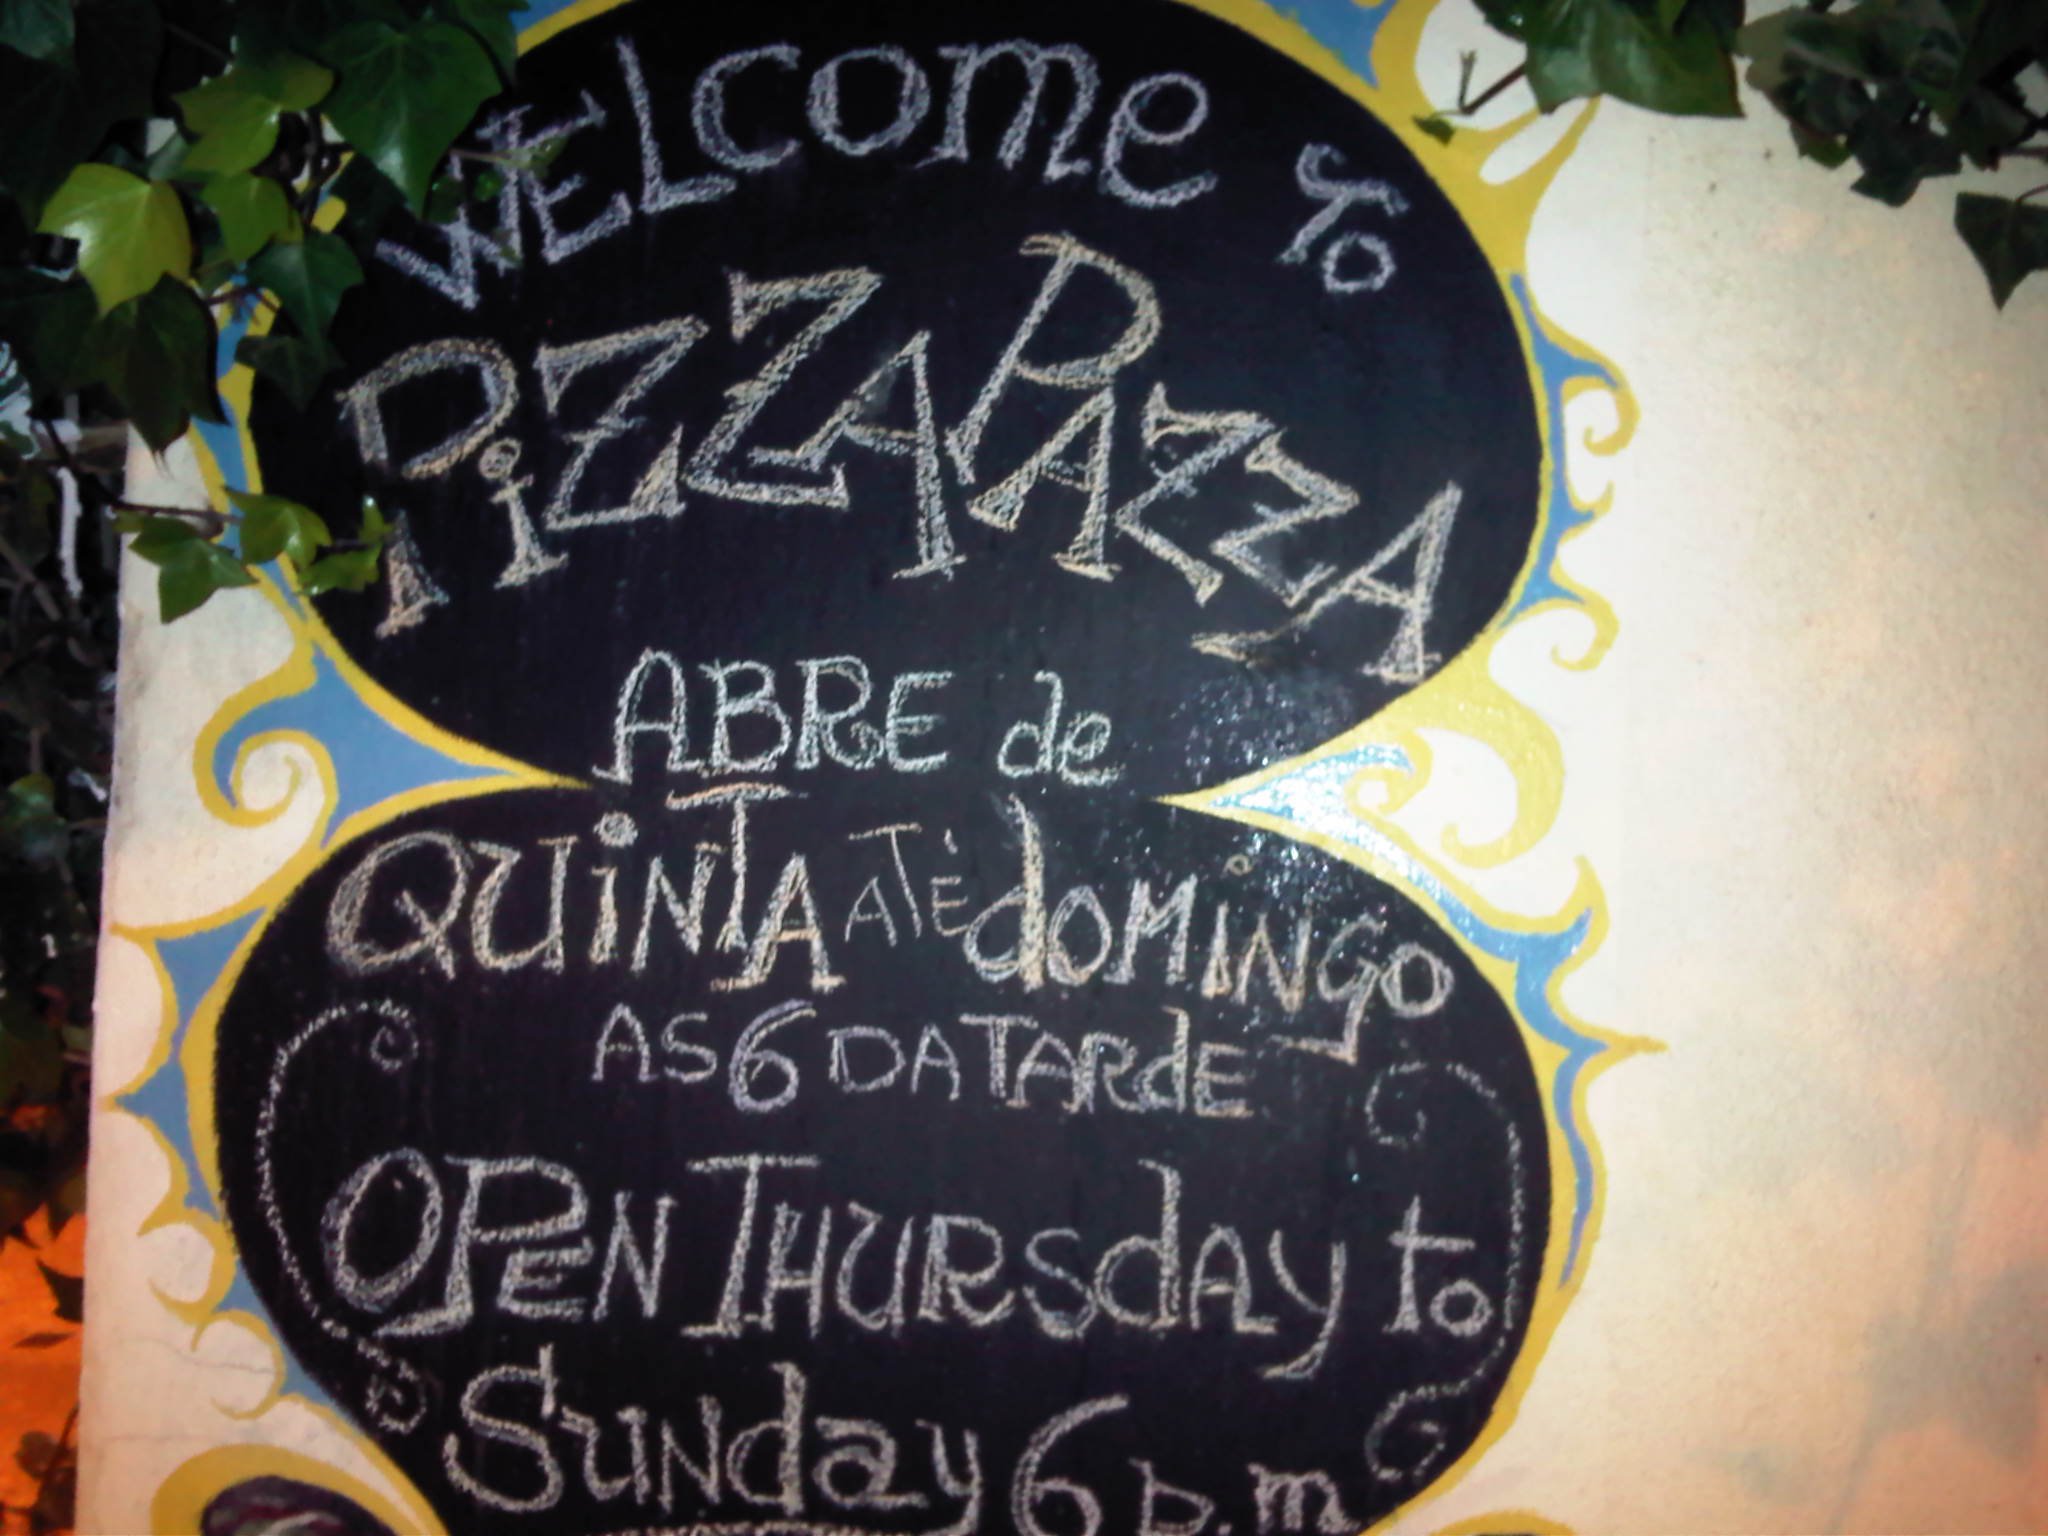 WELcome To
PiZZAPAZZA
ABRE de
QUiNTA ATÈ doMiNGO
AS 6 DA TARdE
OPEN THURSdAy to
SUNday 6 p.m